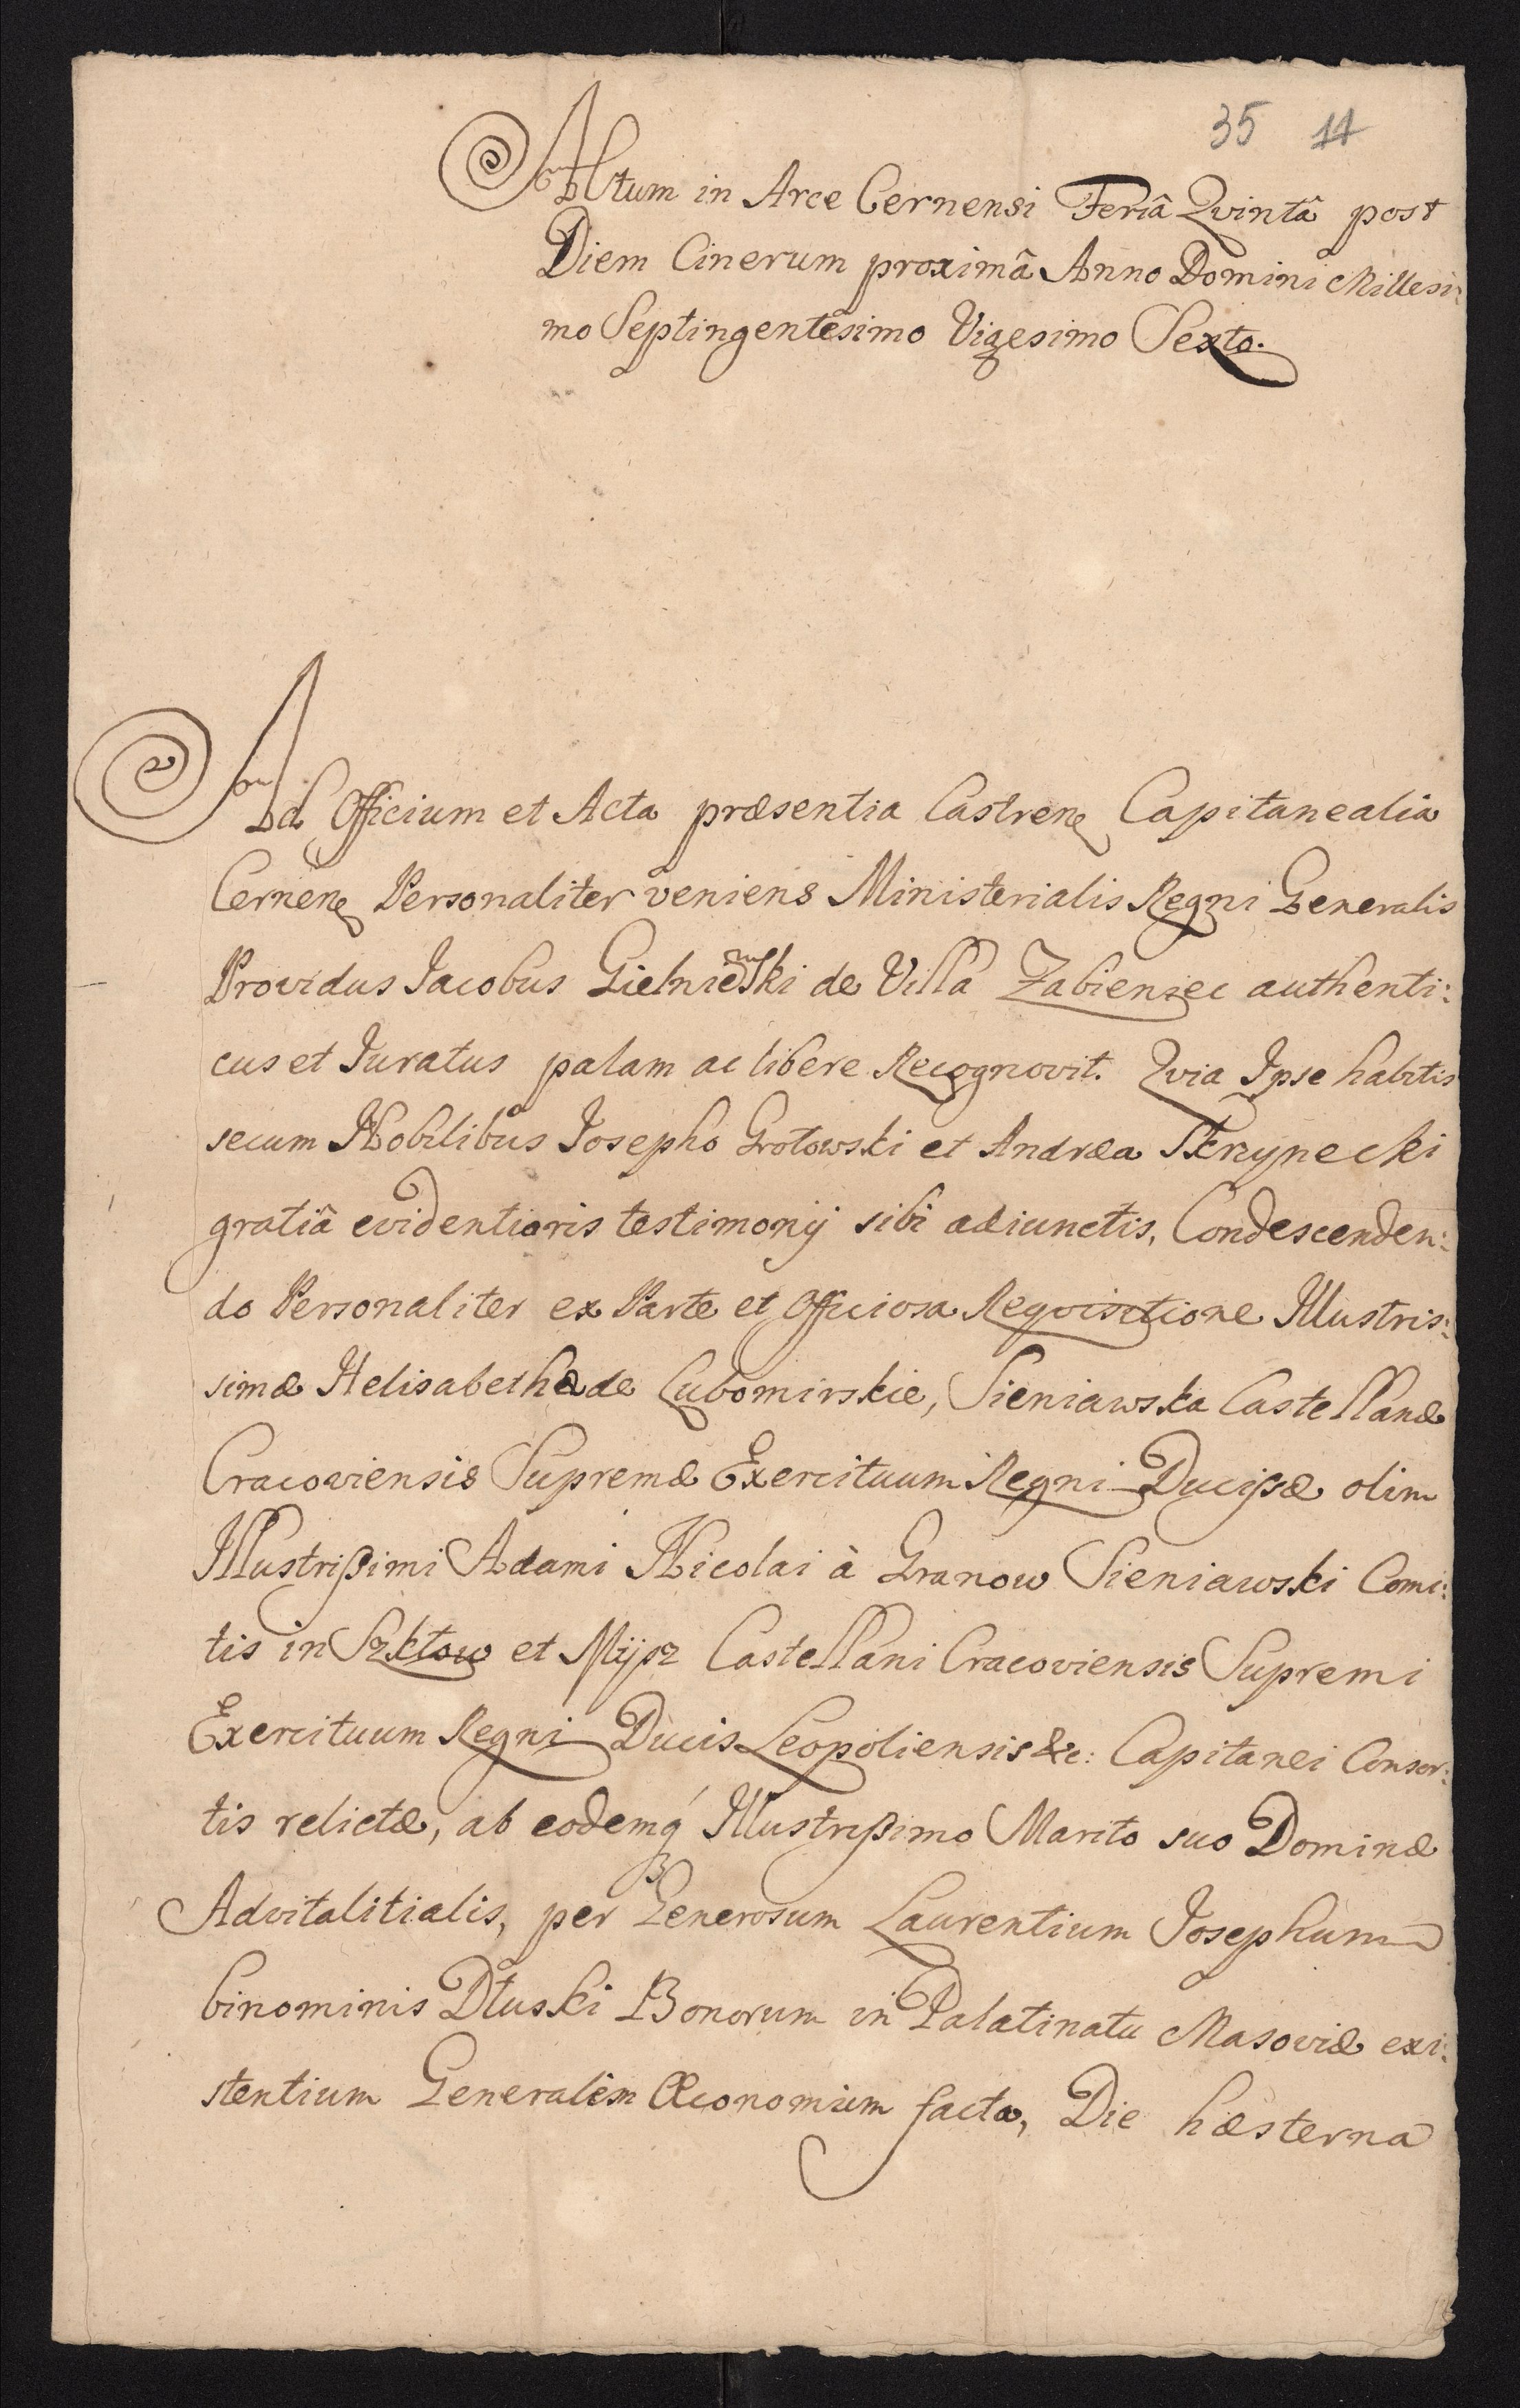 35 14
Actum in Arce Cernensi Feriâ Qvintâ post
Diem Cinerum proximâ Anno Domini Millesi:
mo Septingentesimo Vigesimo Sexto.
Ad Officium et Acta præsentia Castren Capitanealia
Cernen Personaliter veniens Ministerialis Regni Generalis
Providus Iacobus Gielniewski de Villa Zabieniec authenti:
cus et Iuratus palam ac libere Recognovit. Qvia Ipse habitis
secum Nobilibus Iosepho Grotowski et Andræa Skrzynecki
gratiâ evidentioris testimonij sibi adiunctis, Condescenden:
do Personaliter ex Parte et Officiosa Reqvisitione Illustris:
simæ Helisabethæ de Lubomirskie, Sieniawska Castellanæ
Cracoviensis Supremæ Exercituum Regni Ducißæ olim
Illustrißimi Adami Nicolai à Granow Sieniawski Comi:
tis in Szkłow et Mysz Castellani Cracoviensis Supremi
Exercituum Regni Ducis Leopoliensis &c: Capitanei Consor:
tis relictæ, ab eodemq́ Illustrißimo Marito suo Dominæ
Advitalitialis, per Generosum Laurentium Iosephum
binominis Dłuski Bonorum in Palatinatu Masoviæ exi:
stentium Generalem Œconomum facta, Die hæsterna